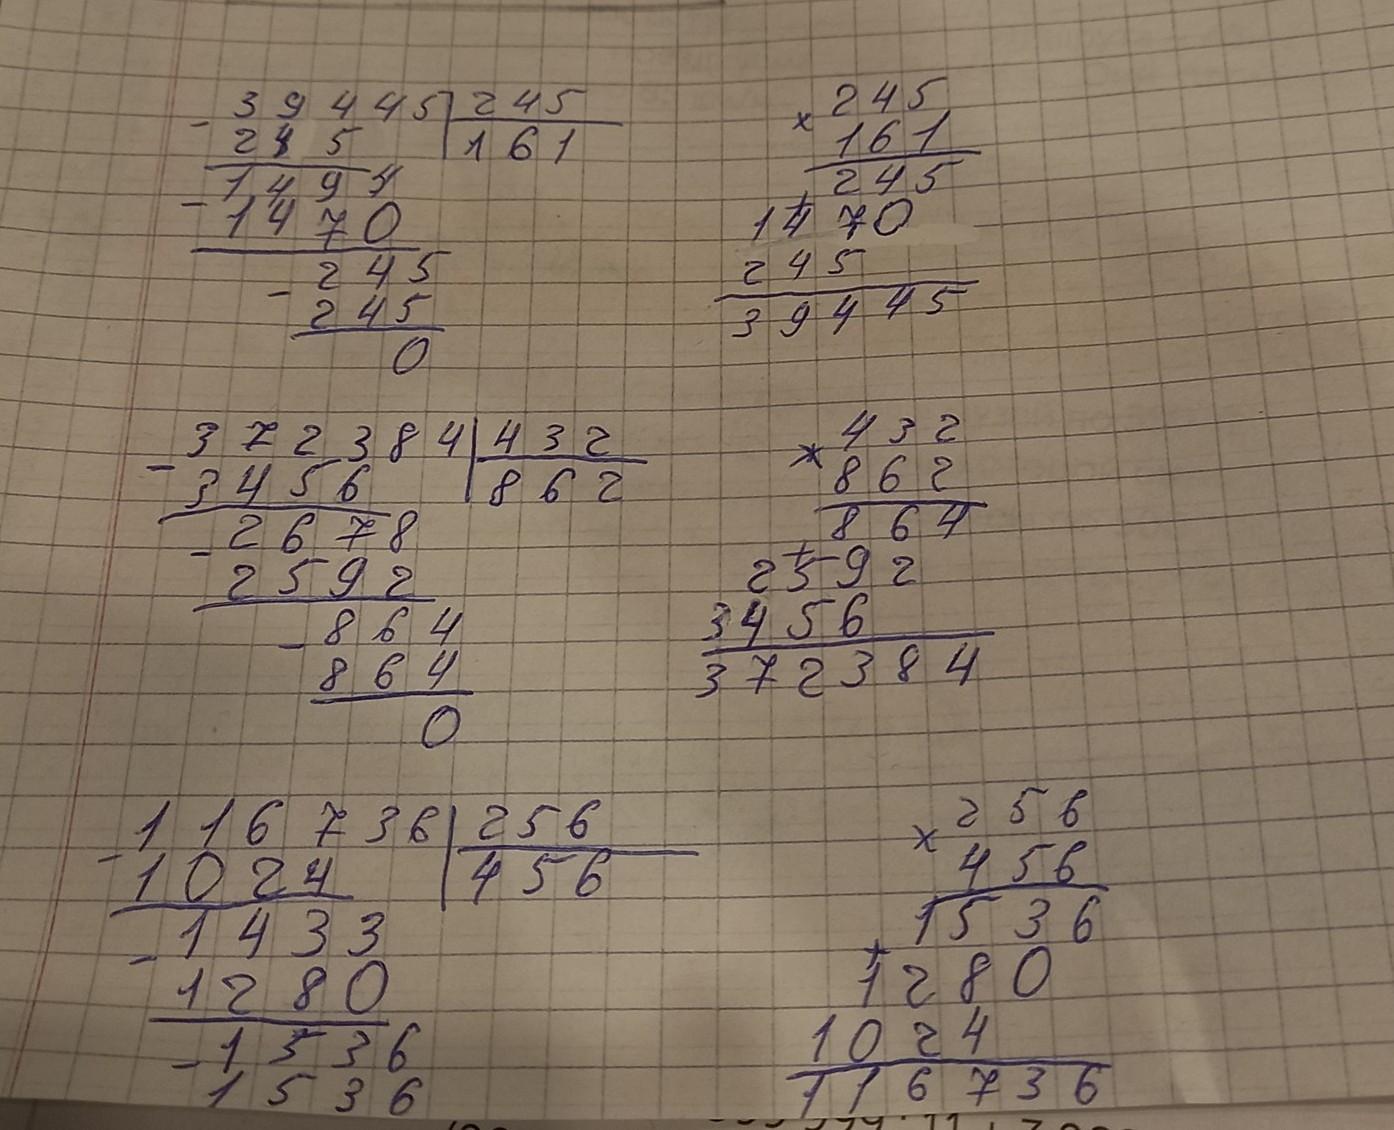 - 39445 | 245
245 | 161
1494
- 1470
245
- 245
0
× 245
161
245
+ 1470
245
39445
- 372384 | 432
3456 | 862
2678
- 2592
864
- 864
0
× 432
862
864
+ 2592
3456
372384
- 116736 | 256
1024 | 456
1433
- 1280
1536
- 1536
× 256
456
1536
+ 1280
1024
116736